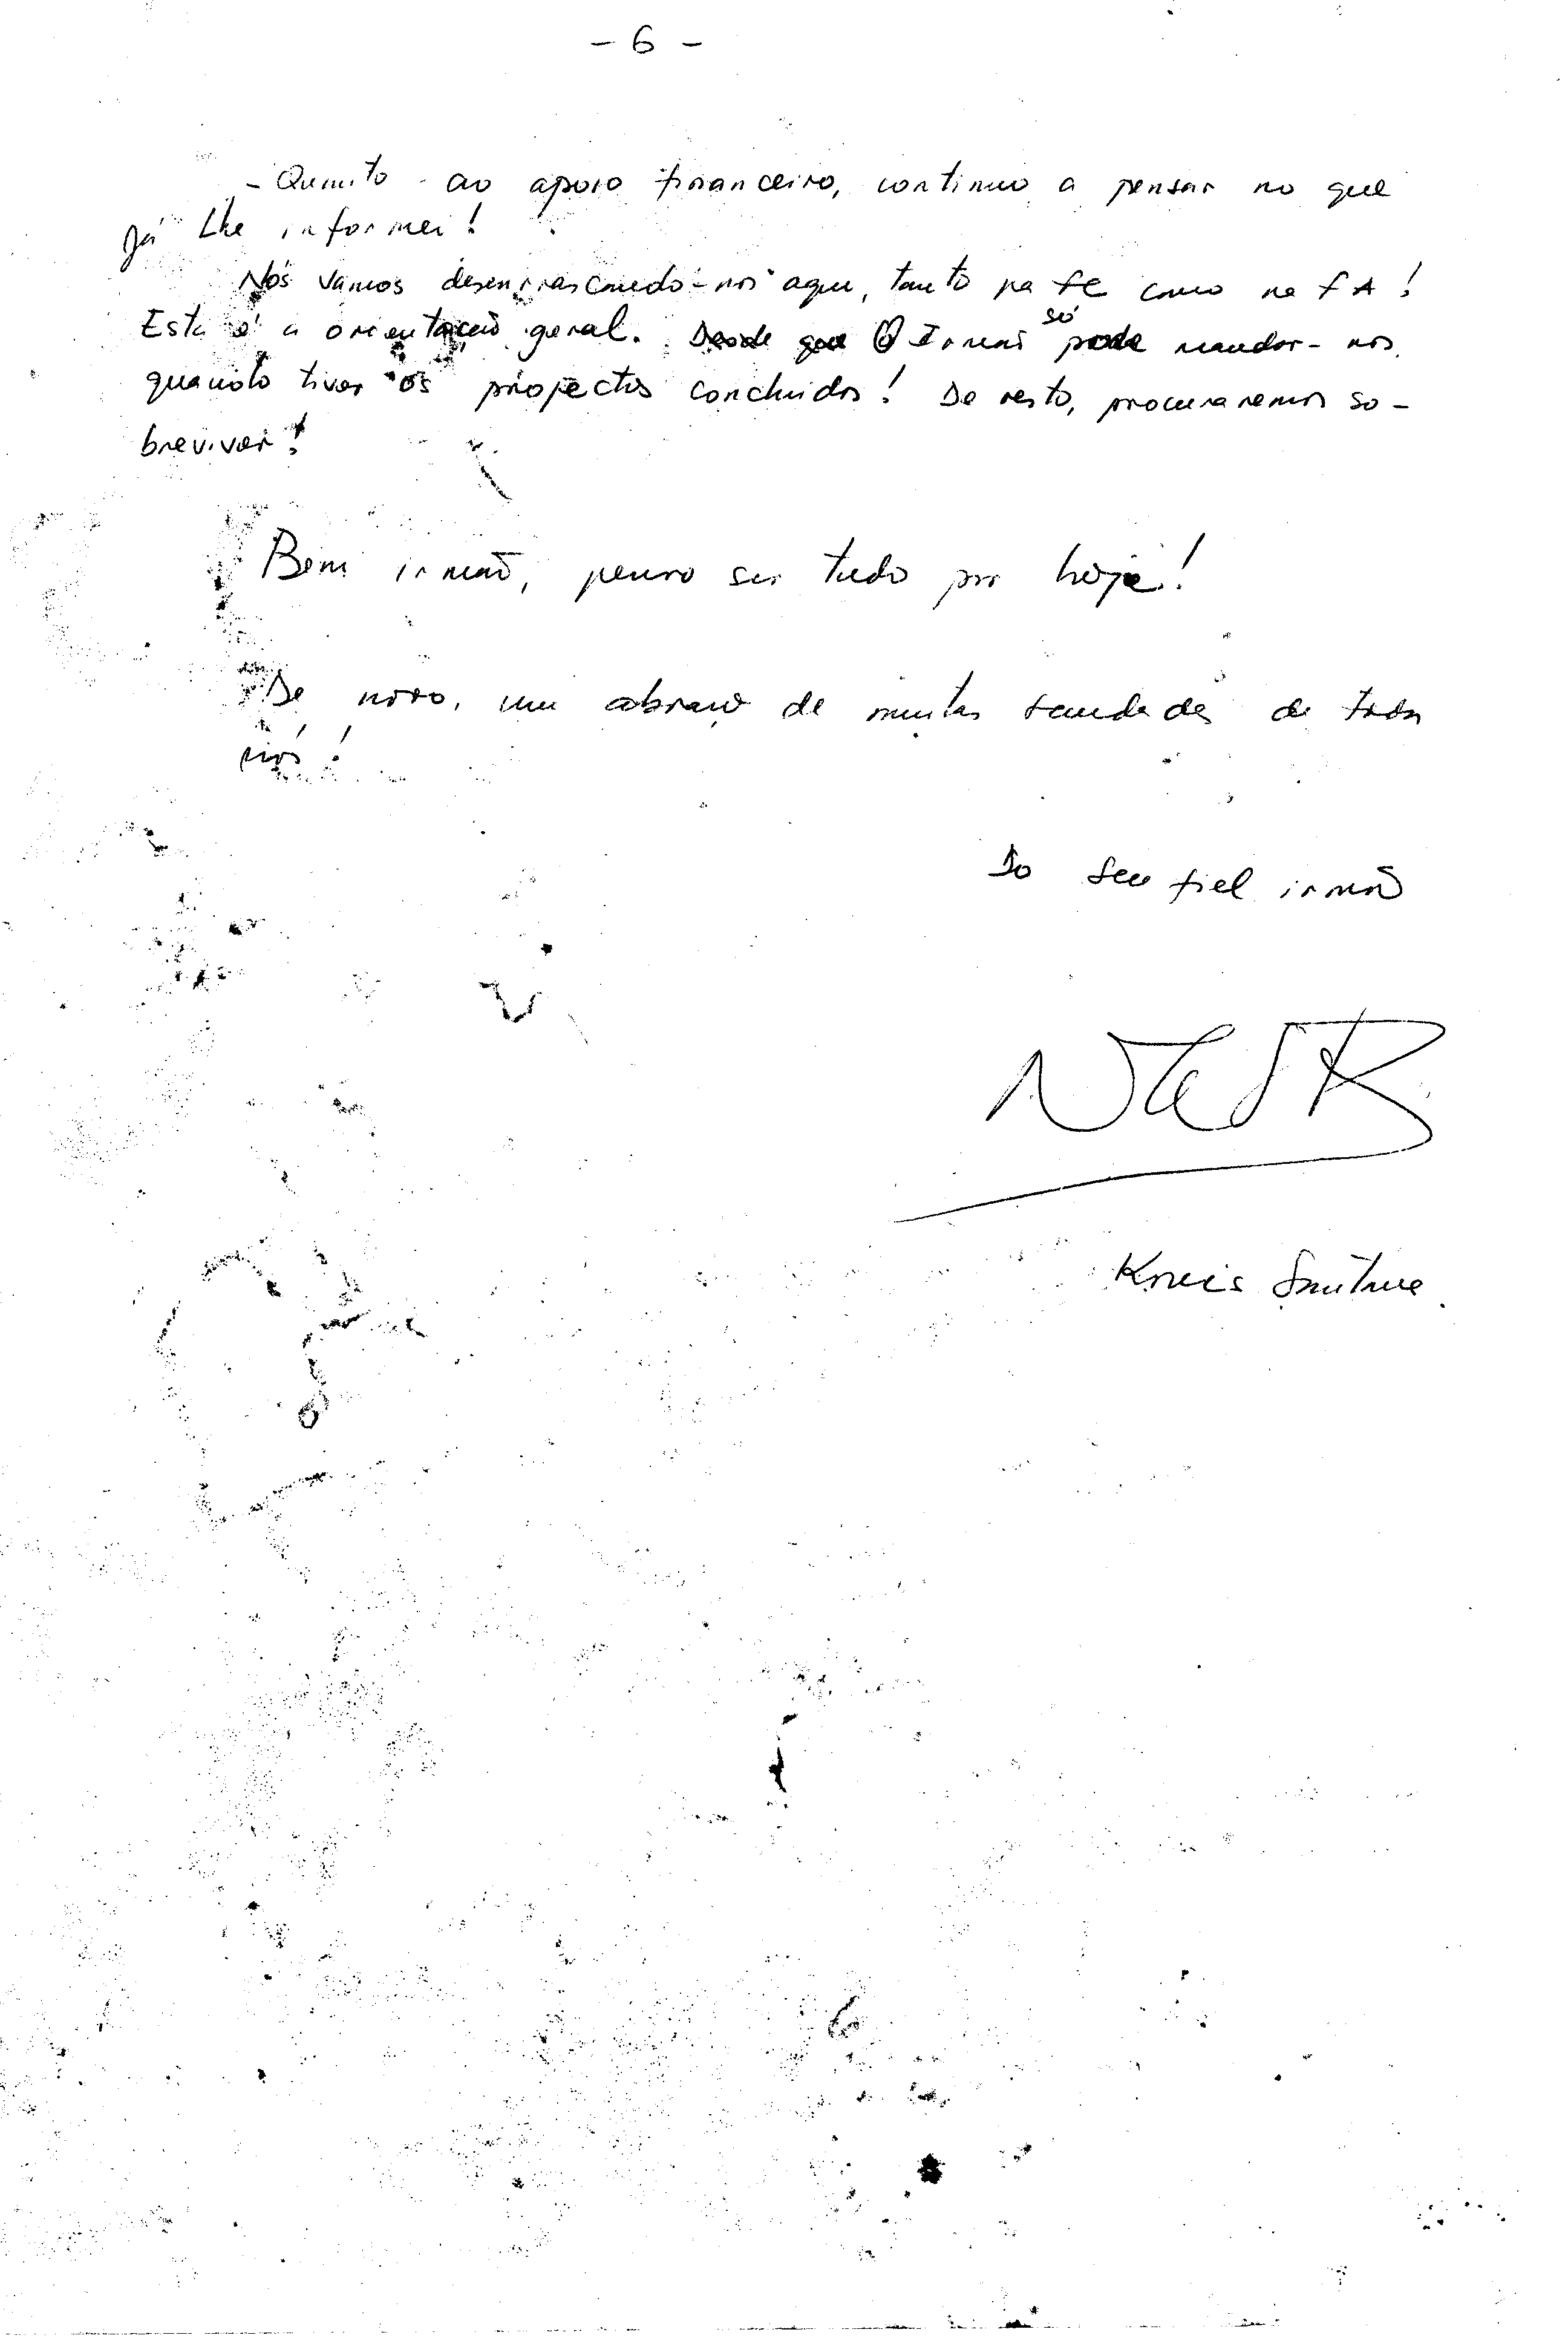 - 6 -
- Quanto ao apoio financeiro, continuo a pensar no que
já Lhe informei!
Nós vamos desenrrascando-nos aqui, tanto na FC como na FA!
Esta é a orientação geral. Desde que O Irmão só pode mandar-nos
quando tiver os projectos concluidos! De resto, procuraremos so-
breviver!
Bem irmão, penso ser tudo por hoje!
De novo, um abraço de muitas saudades de todos
nós!
Do seu fiel irmão